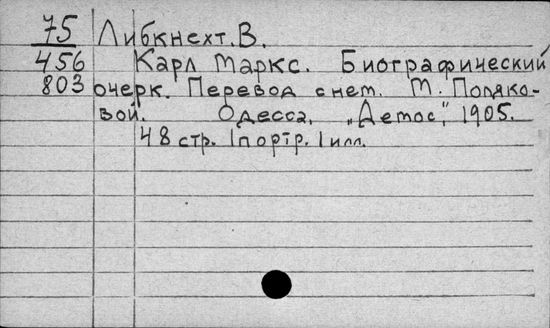 75 Либкнехт. В.
456 Карл Маркс. Биографический
803 очерк. Перевод с нем. М. Поляко-
вой. Одесса, „Демос", 1905.
48 стр. 1 портр. 1 илл.